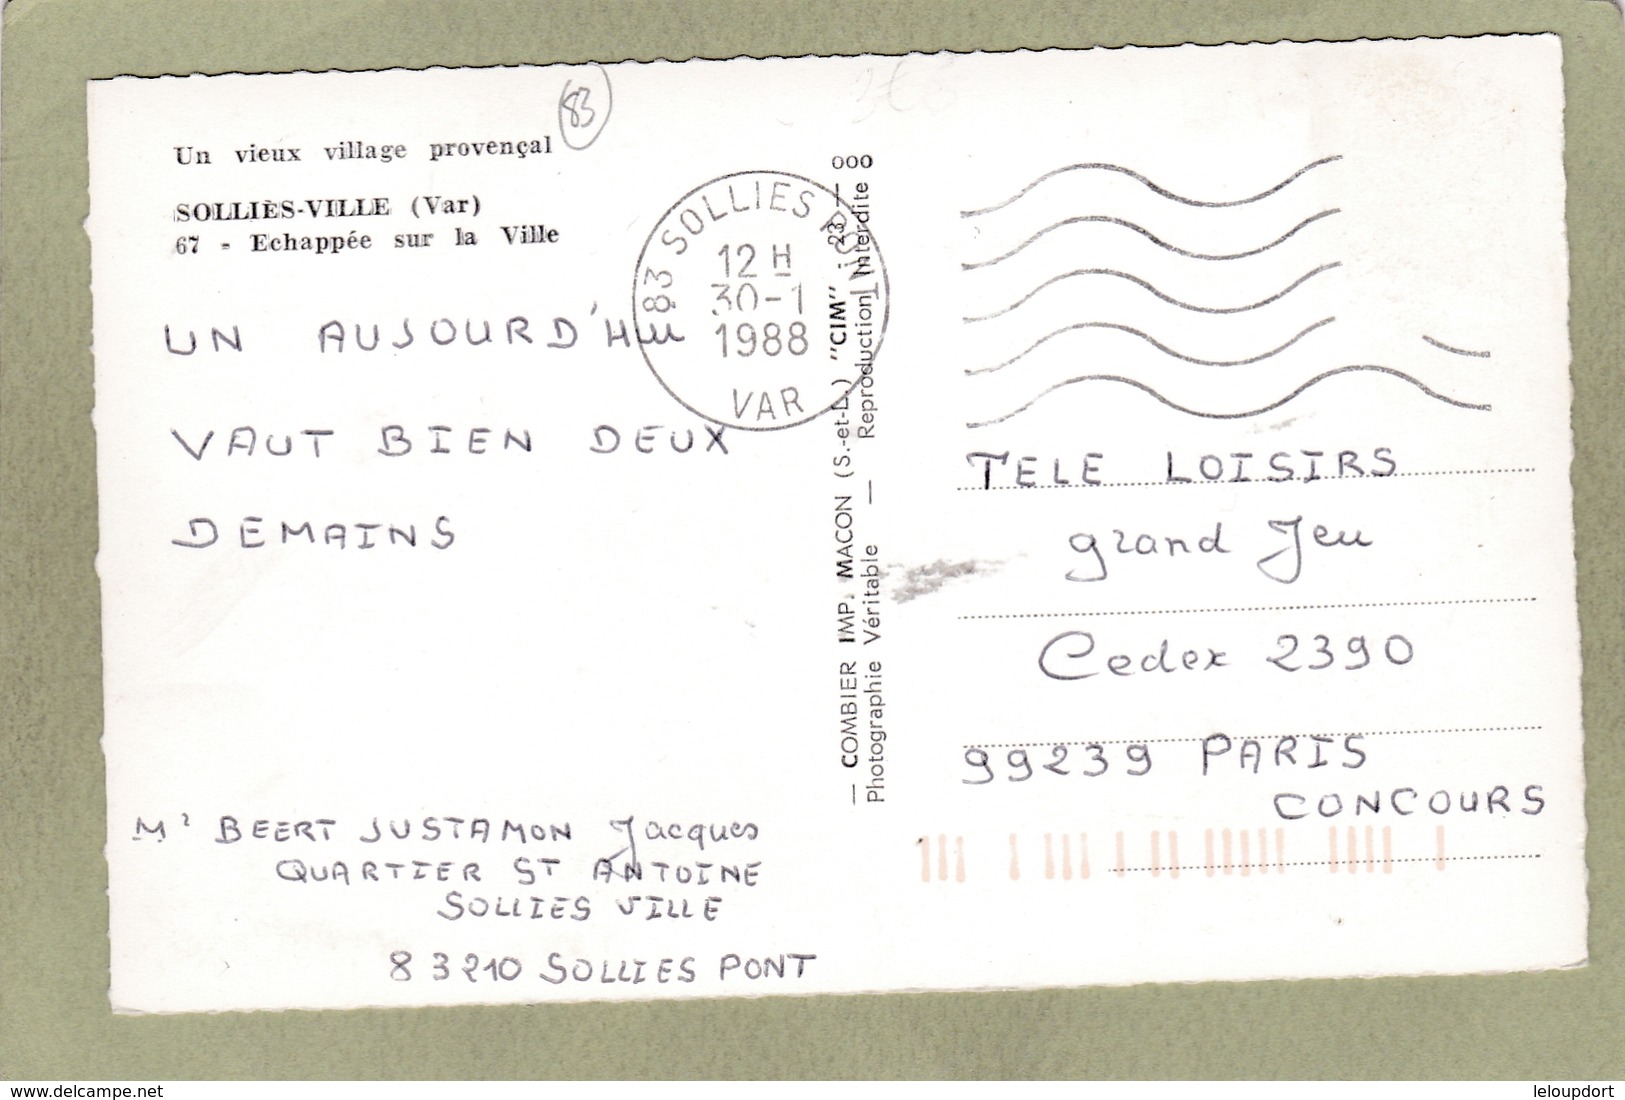 83
Un vieux village provençal
SOLLIÈS-VILLE (Var)
67 - Echappée sur la Ville
UN AUJOURD'HUI
VAUT BIEN DEUX
DEMAINS
Mr BEERT JUSTAMON Jacques
QUARTIER ST ANTOINE
SOLLIES VILLE
83210 SOLLIES PONT
83 SOLLIES PONT
12 H
30-1
1988
VAR
— COMBIER IMP. MACON (S.-et-L.) "CIM" - 23 — 000
Photographie Véritable — Reproduction Interdite
TELE LOISIRS
grand Jeu
Cedex 2390
99239 PARIS
CONCOURS
leloupdort